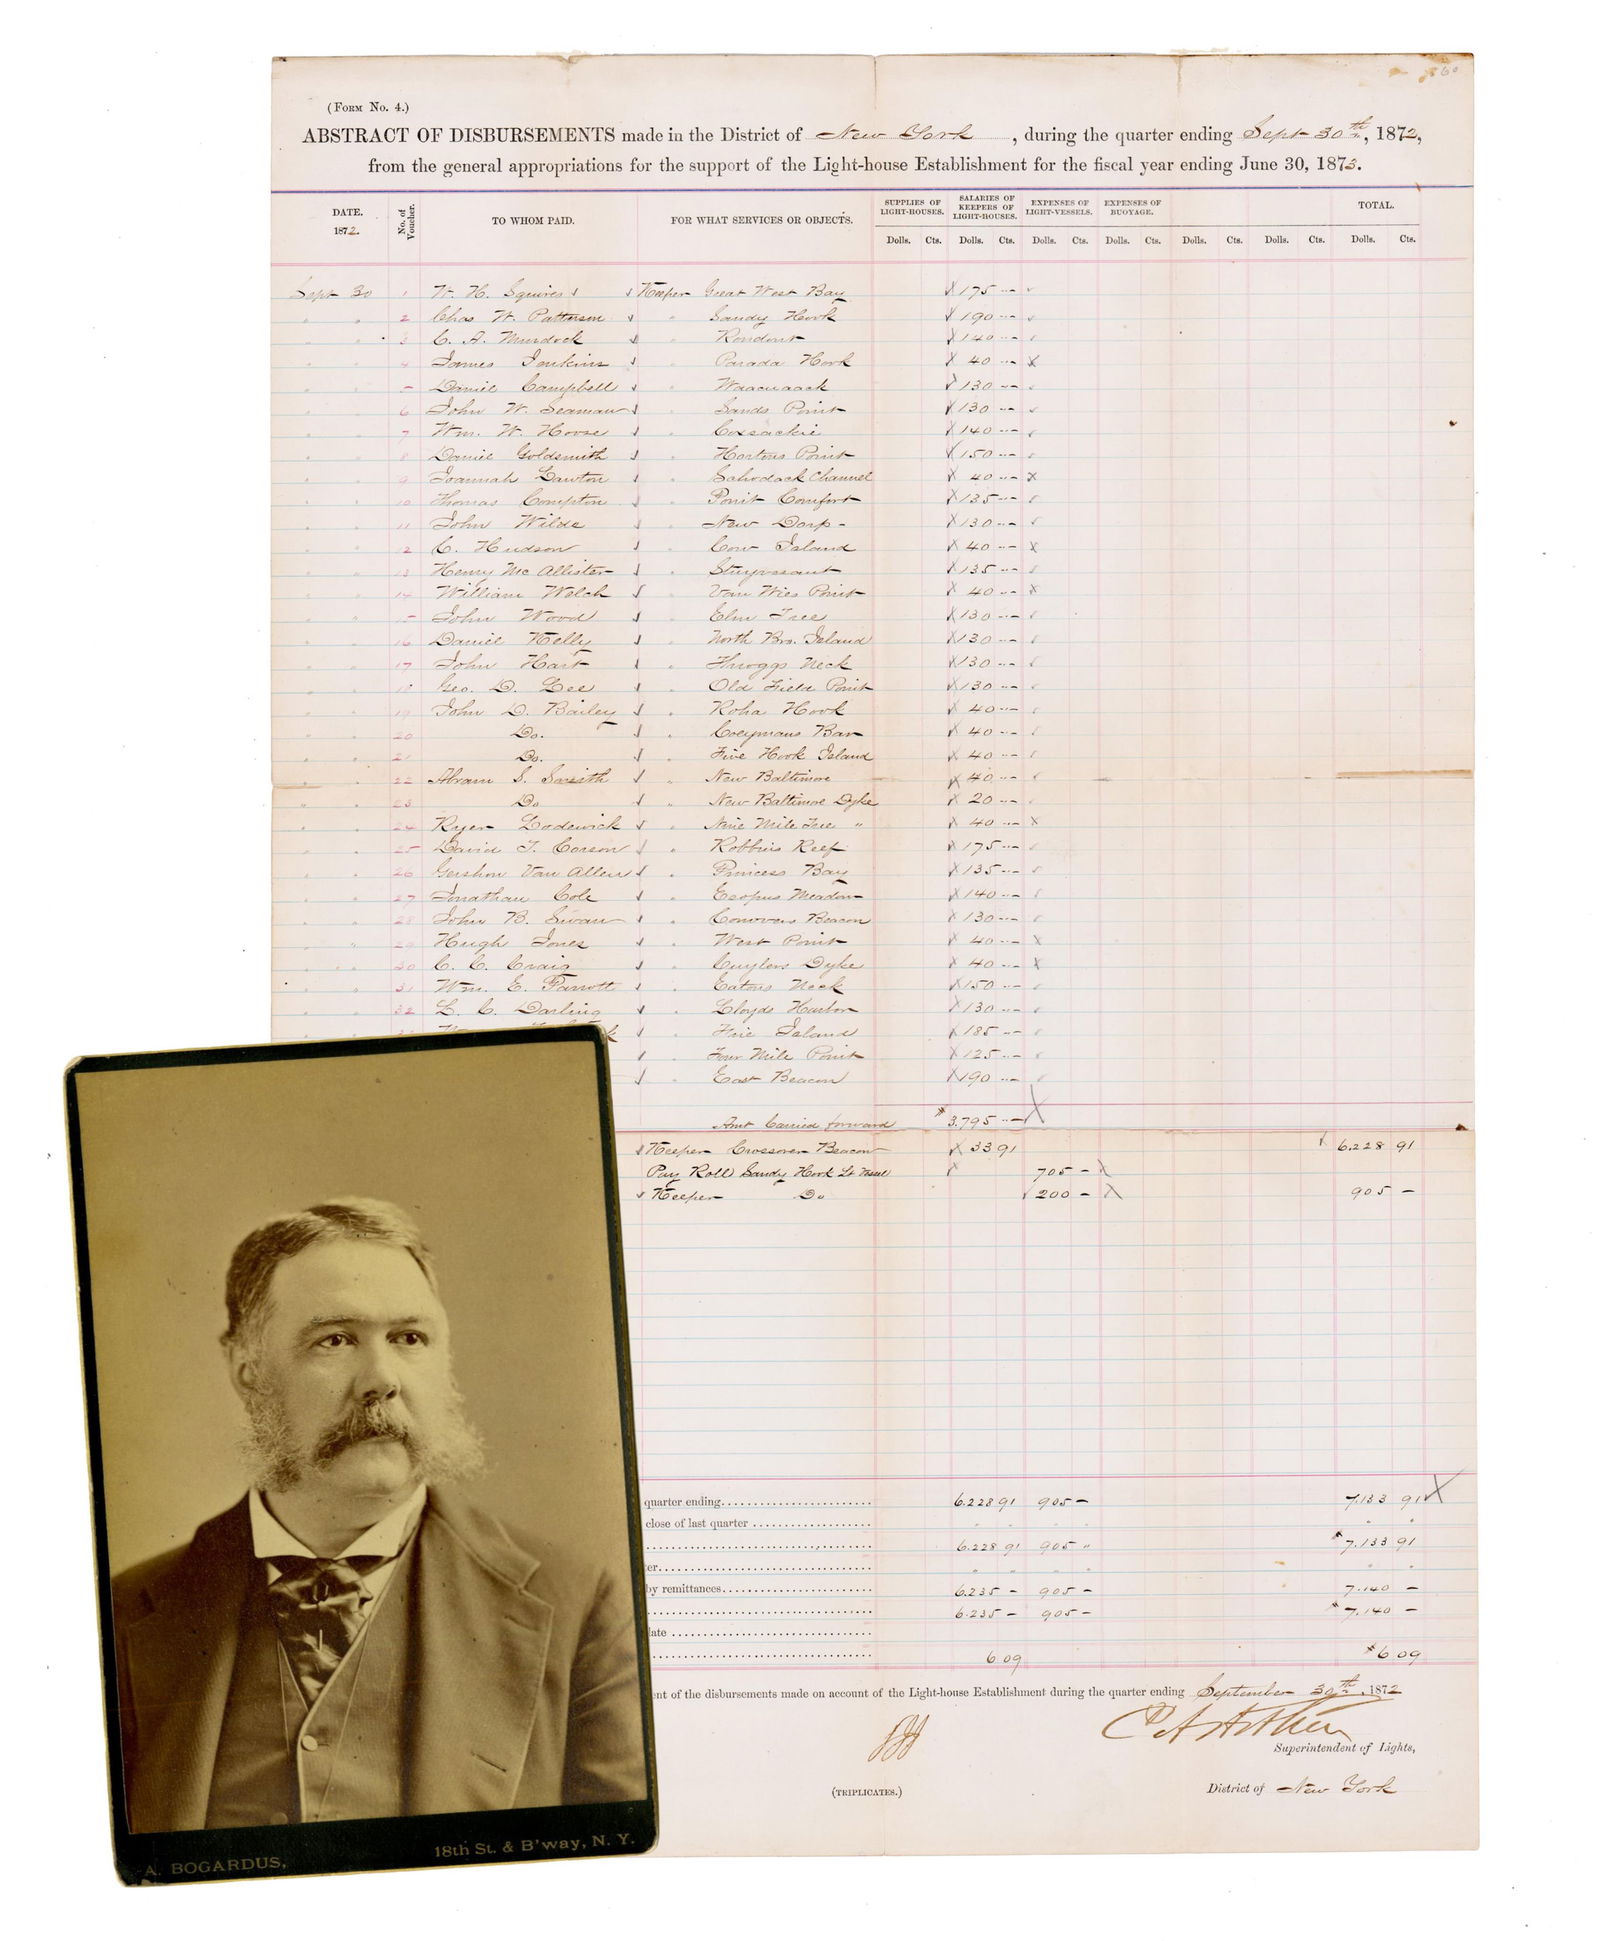 60
(Form No. 4.)
ABSTRACT OF DISBURSEMENTS made in the District of New York, during the quarter ending Sept 30th, 1872,
from the general appropriations for the support of the Light-house Establishment for the fiscal year ending June 30, 1873.
DATE. 1872. No. of Voucher. TO WHOM PAID. FOR WHAT SERVICES OR OBJECTS. SUPPLIES OF LIGHT-HOUSES. SALARIES OF KEEPERS OF LIGHT-HOUSES. EXPENSES OF LIGHT-VESSELS. EXPENSES OF BUOYAGE. TOTAL.
Dolls. Cts. Dolls. Cts. Dolls. Cts. Dolls. Cts. Dolls. Cts. Dolls. Cts. Dolls. Cts.
Sept 30 1 W. H. Squires Keeper Great West Bay 175
" " 2 Chas W. Patterson " Sandy Hook 190
" " 3 C. A. Murdock " Rondout 140
" " 4 James Jenkins " Parada Hook 40
" " Daniel Campbell " Waacuaack 130
" " 6 John W. Seaman " Sands Point 130
" " 7 Wm. W. Hoose " Coxsackie 140
" " 8 Daniel Goldsmith " Hortons Point 150
" " 9 Joannah Lawton " Schodack Channel 40
" " 10 Thomas Compton " Point Comfort 135
" " 11 John Wilde " New Dorp 130
" " 2 C. Hudson " Cow Island 40
" " 13 Henry McAllister " Stuyvesant 135
" " 14 William Welch " Van Wies Point 40
" " John Wood " Elm Tree 130
" " 16 Daniel Kelly " North Bro. Island 130
" " 17 John Hart " Throggs Neck 130
" " 18 Geo. D. Lee " Old Field Point 130
" " 19 John D. Bailey " Roha Hook 40
" " 20 Do. " Coeymans Bar 40
" " 21 Do. " Five Hook Island 40
" " 22 Abram S. Smith " New Baltimore 40
" " 23 Do " New Baltimore Dyke 20
" " 24 Ryer Lodewick " Nine Mile Tree " 40
" " 25 David T. Corson " Robbins Reef 175
" " 26 Gershon Van Allen " Princess Bay 135
" " 27 Jonathan Cole " Esopus Meadow 140
" " 28 John B. Swan " Conovers Beacon 130
" " 29 Hugh Jones " West Point 40
" " 30 C. C. Craig " Cuylers Dyke 40
" " 31 Wm. E. Parrott " Eatons Neck 150
" " 32 L. C. Darling " Lloyds Harbor 130
" Fire Island 185
" Four Mile Point 125
" East Beacon 190
Amt Carried forward 3.795
Keeper Crossover Beacon 33 91 6.228 91
Pay Roll Sandy Hook Lt Vessel 705 -
Keeper Do 200 - 905 -
quarter ending 6.228 91 905 - 7.133 91
close of last quarter " " " "
6.228 91 905 " 7.133 91
ter
by remittances 6.235 - 905 - 7.140 -
6.235 - 905 - 7.140 -
date
6 09 $6 09
ent of the disbursements made on account of the Light-house Establishment during the quarter ending September 30th, 1872
C A Arthur
Superintendent of Lights,
(TRIPLICATES.)
District of New York
A. BOGARDUS, 18th St. & B'way, N. Y.